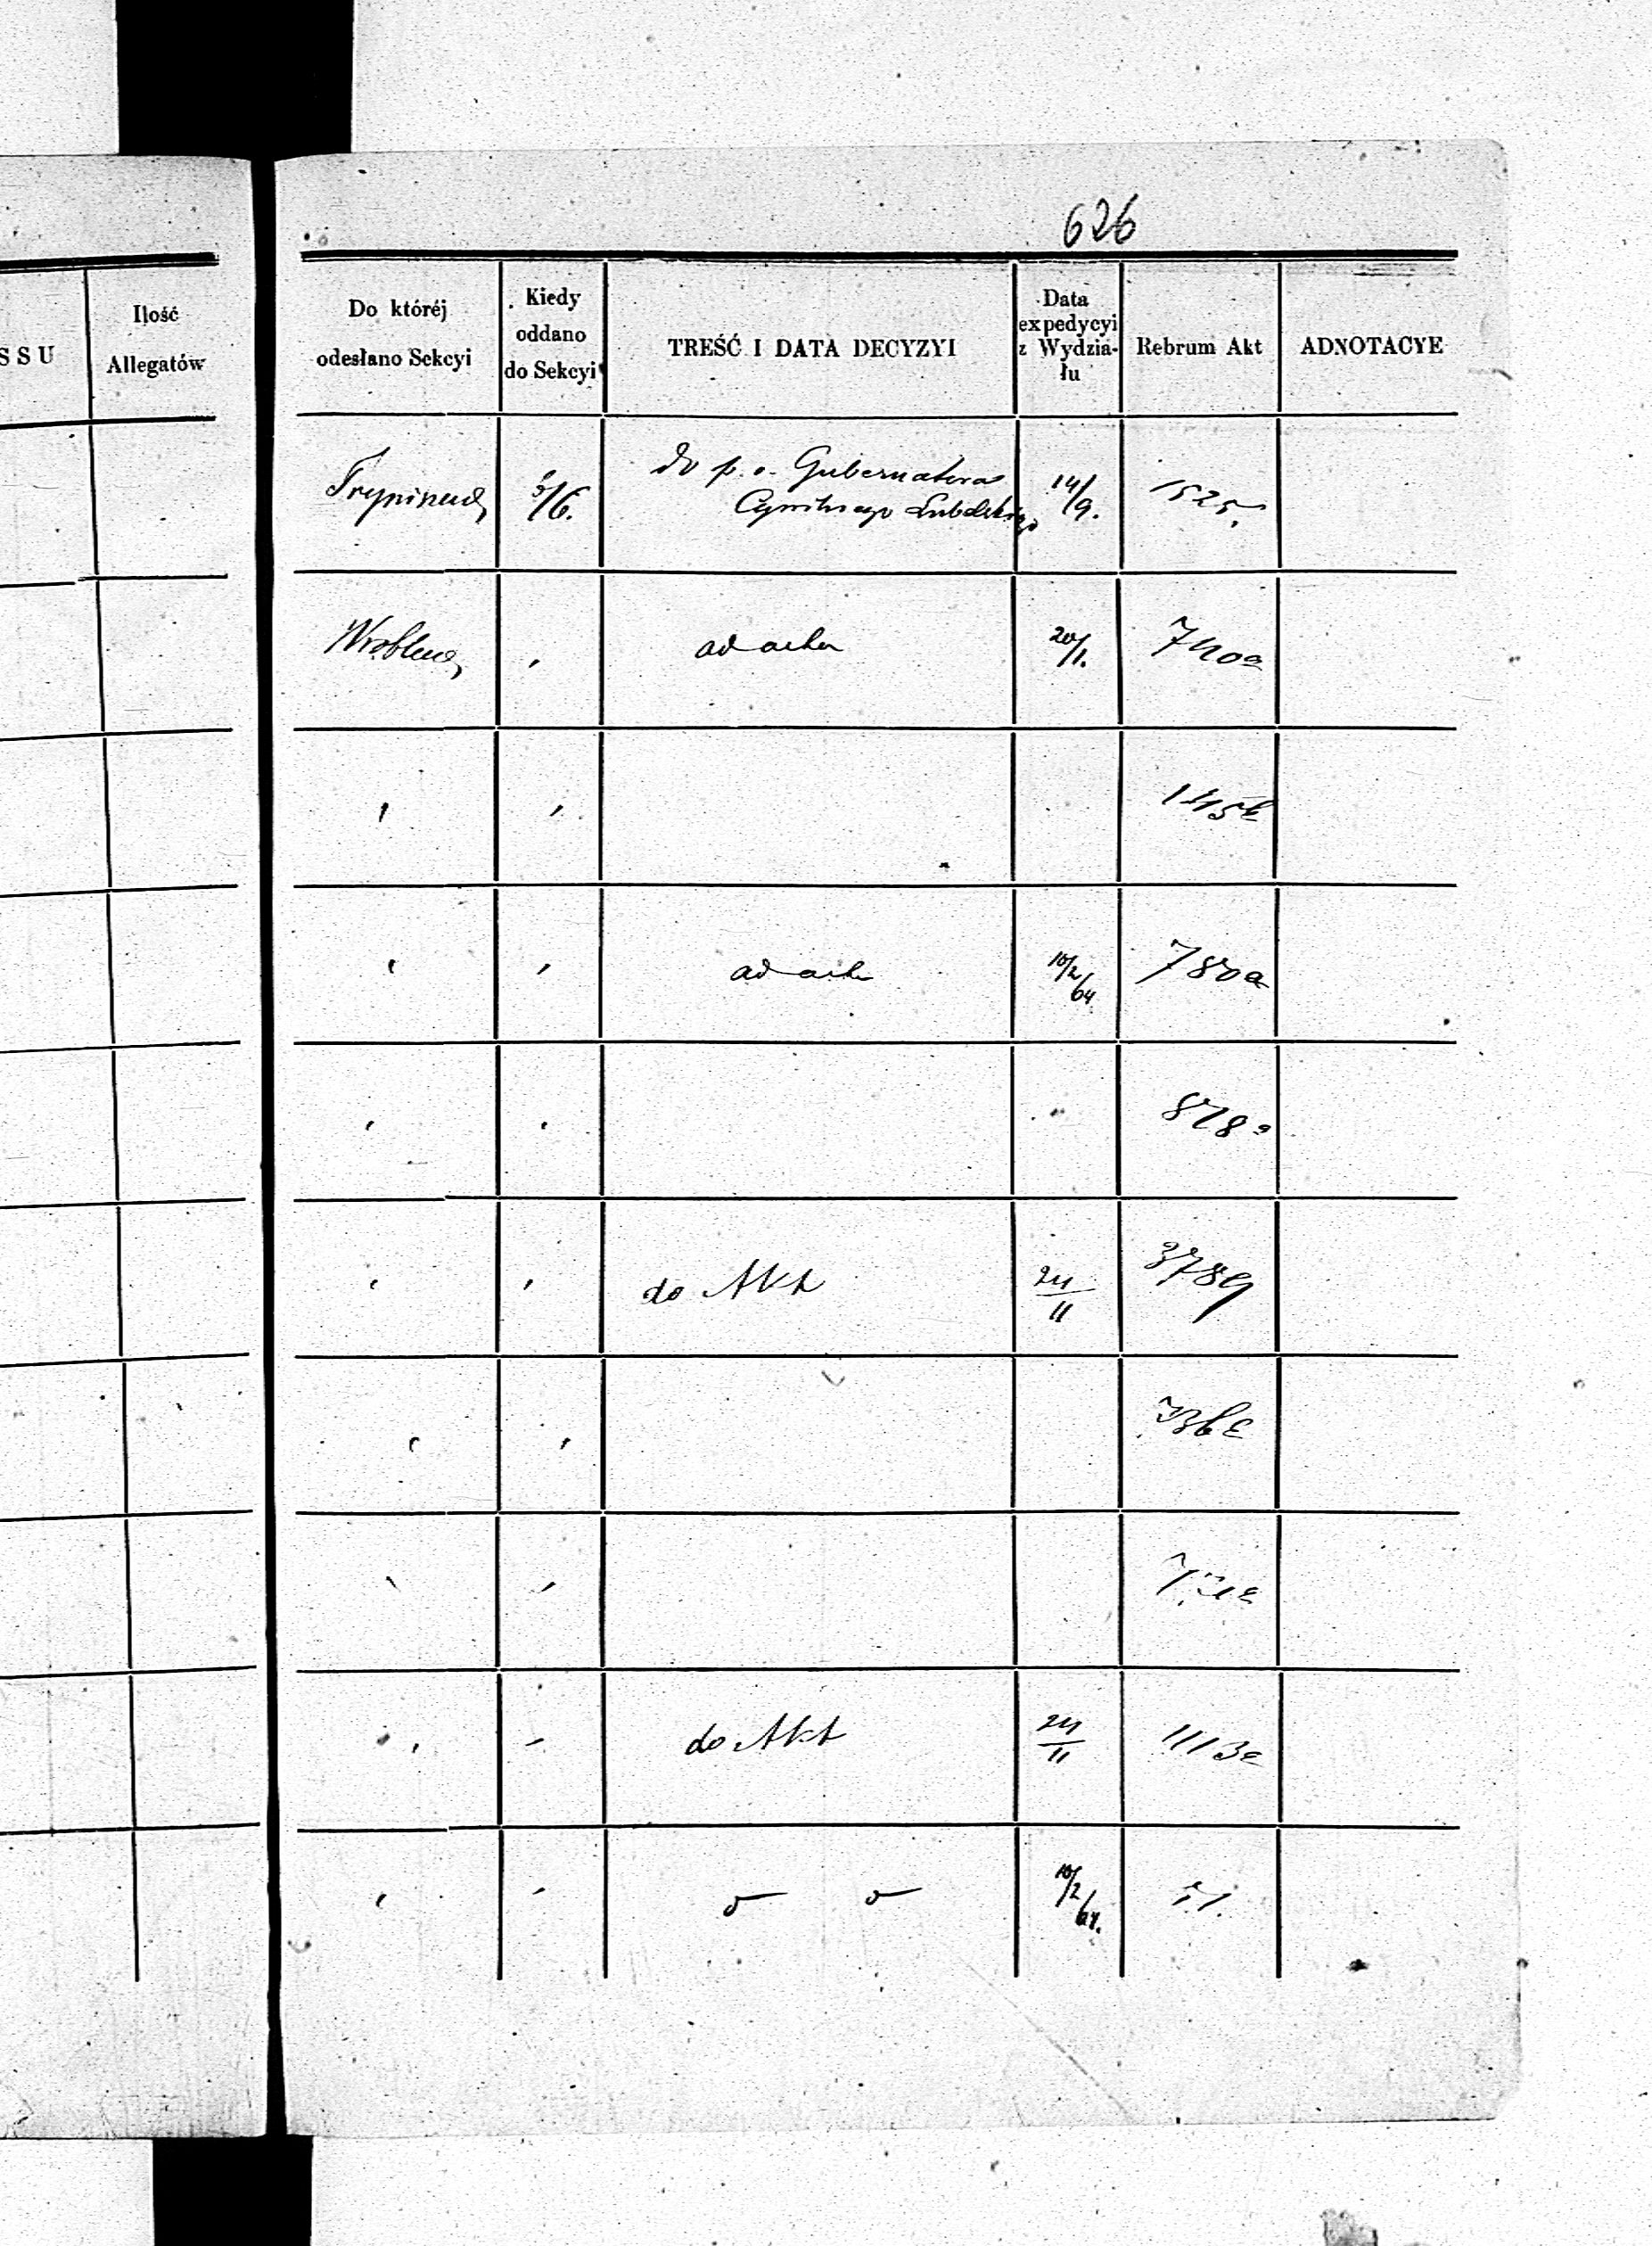 626
SSU
Ilość
Allegatów
Do któréj
odesłano Sekcyi
Kiedy
oddano
do Sekcyi
TREŚĆ I DATA DECYZYI
Data
expedycyi
z Wydzia-
łu
Rebrum Akt
ADNOTACYE
5/6.
do p. o. Gubernatora
Cywilnego Lubelskiego
14/9.
1525
ad acta
20/1.
740a
ad acta
10/2/64
780a
878a
do Akt
24/11
do Akt
24/11
1113
10/2/64.